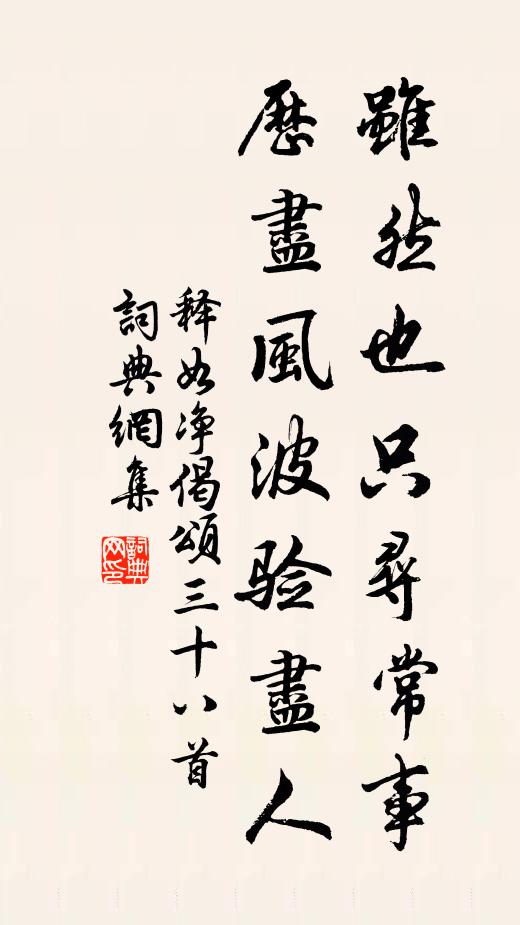 雖然也只尋常事
歷盡風波验盡人
释如净偈頌三十八首
詞典網集
詞典网印